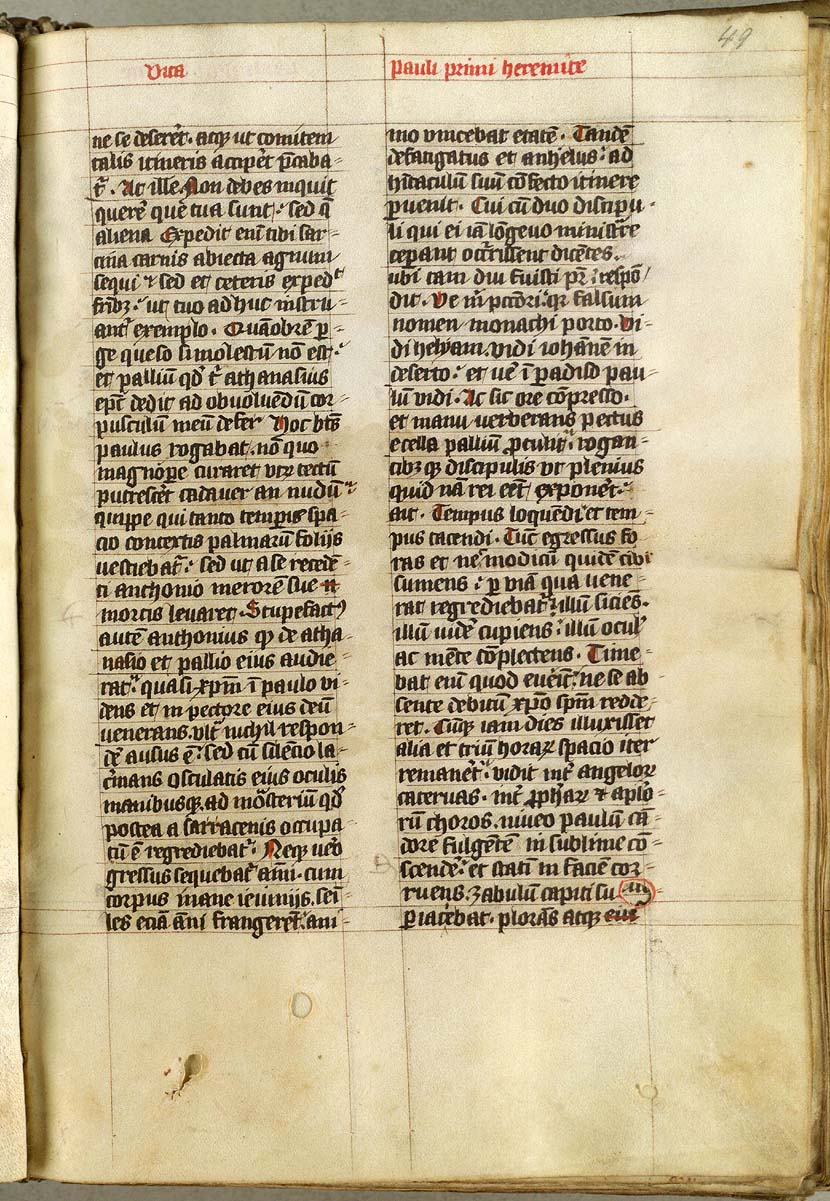 49
Vita
pauli primi heremite
ne se deserēt. atqꝫ ut comitem
talis itineris acciꝑet p̄caba-
t᷑. At ille. Non debes inquit
querē que tua sunt. sed q̄
aliena Expedit enī tibi sar-
cina carnis abiecta agnum
sequi sed et ceteris exped᷑
fr̄ibꝫ. ut tuo adhuc instru-
ant᷑ exemplo. Quāobrē ꝑ-
ge queso si molestū nō est.
et pallium qd̓ t᷑ athanasius
ep̄c dedit ad obuoluendū cor-
pusculum meū defer Hoc bt̄s
paulus rogabat. nō quo
magnoꝑe curaret utꝝ tectū
putrescēt cadauer an nudū.
quippe qui tanto temꝑis spa-
cio contextis palmarū folijs
uestiebat᷑. sed ut a se recedē-
ti anthonio merorē sue
mortis leuaret. Stupefactꝰ
autē anthonius qꝫ de atha-
nasio et pallio eius audie-
rat. quasi xp̄m ī paulo vi-
dens et in pectore eius deū
uenerans. vlt᷑ nichil respon-
dē ausus ē. sed cū silencio la-
c̓mans osculatis eius oculis
manibusqꝫ. ad mōsterium qd̓
postea a sarracenis occupa-
tū ē regrediebat᷑. Neqꝫ uero
gressus sequebat᷑ aīm. cum
corpus inane ieiunijs. seni-
les eciā āni frangerēt. ani-
mo vincebat etatē. Tandē
defatigatus et anhelus. ad
h̓itaculū suū cōfecto itinere
ꝑuenit. Cui cū duo discipu-
li qui ei iā lōgeuo ministrare
ceperant occ̓rissent dicētes.
ubi tam diu fuisti pr̄. respō-
dit. Ve m̓ pcc̄ori. qr falsum
nomen monachi porto. Vi-
di helyam. vidi iohānē in
deserto. et ue᷑ ī padiso pau-
lū vidi. Ac sic ore cōpresso.
et manu uerberans pectus
e cella pallium ꝓtulit. rogan-
tibꝫqꝫ discipulis vt plenius
quid nā rei eēt exponēt.
ait. Tempus loquēdi et tem-
pus tacendi. Tūc egressus fo-
ras et ne modicū quidē cibi
sumens. ꝑ viā qua uene-
rat regrediebat᷑. illum siciēs.
illum uidē cupiens. illum oculꝭ
ac mēte cōplectens. Time-
bat enī quod euēit. ne se ab-
sente debitum xp̄o spm̄ redde-
ret. Cūqꝫ iam dies illuxisset
alia et triū horaꝝ spacio iter
remanēt. vidit int᷑ angeloꝝ
cateruas. int᷑ ꝓphaꝝ et apl̓o-
rū choros. niueo paulū cā-
dore fulgētē in sublime cō-
scendē. et statī in faciē cor-
ruens. zabulū capiti su-
ꝑiaciebat. plorās atqꝫ eiu